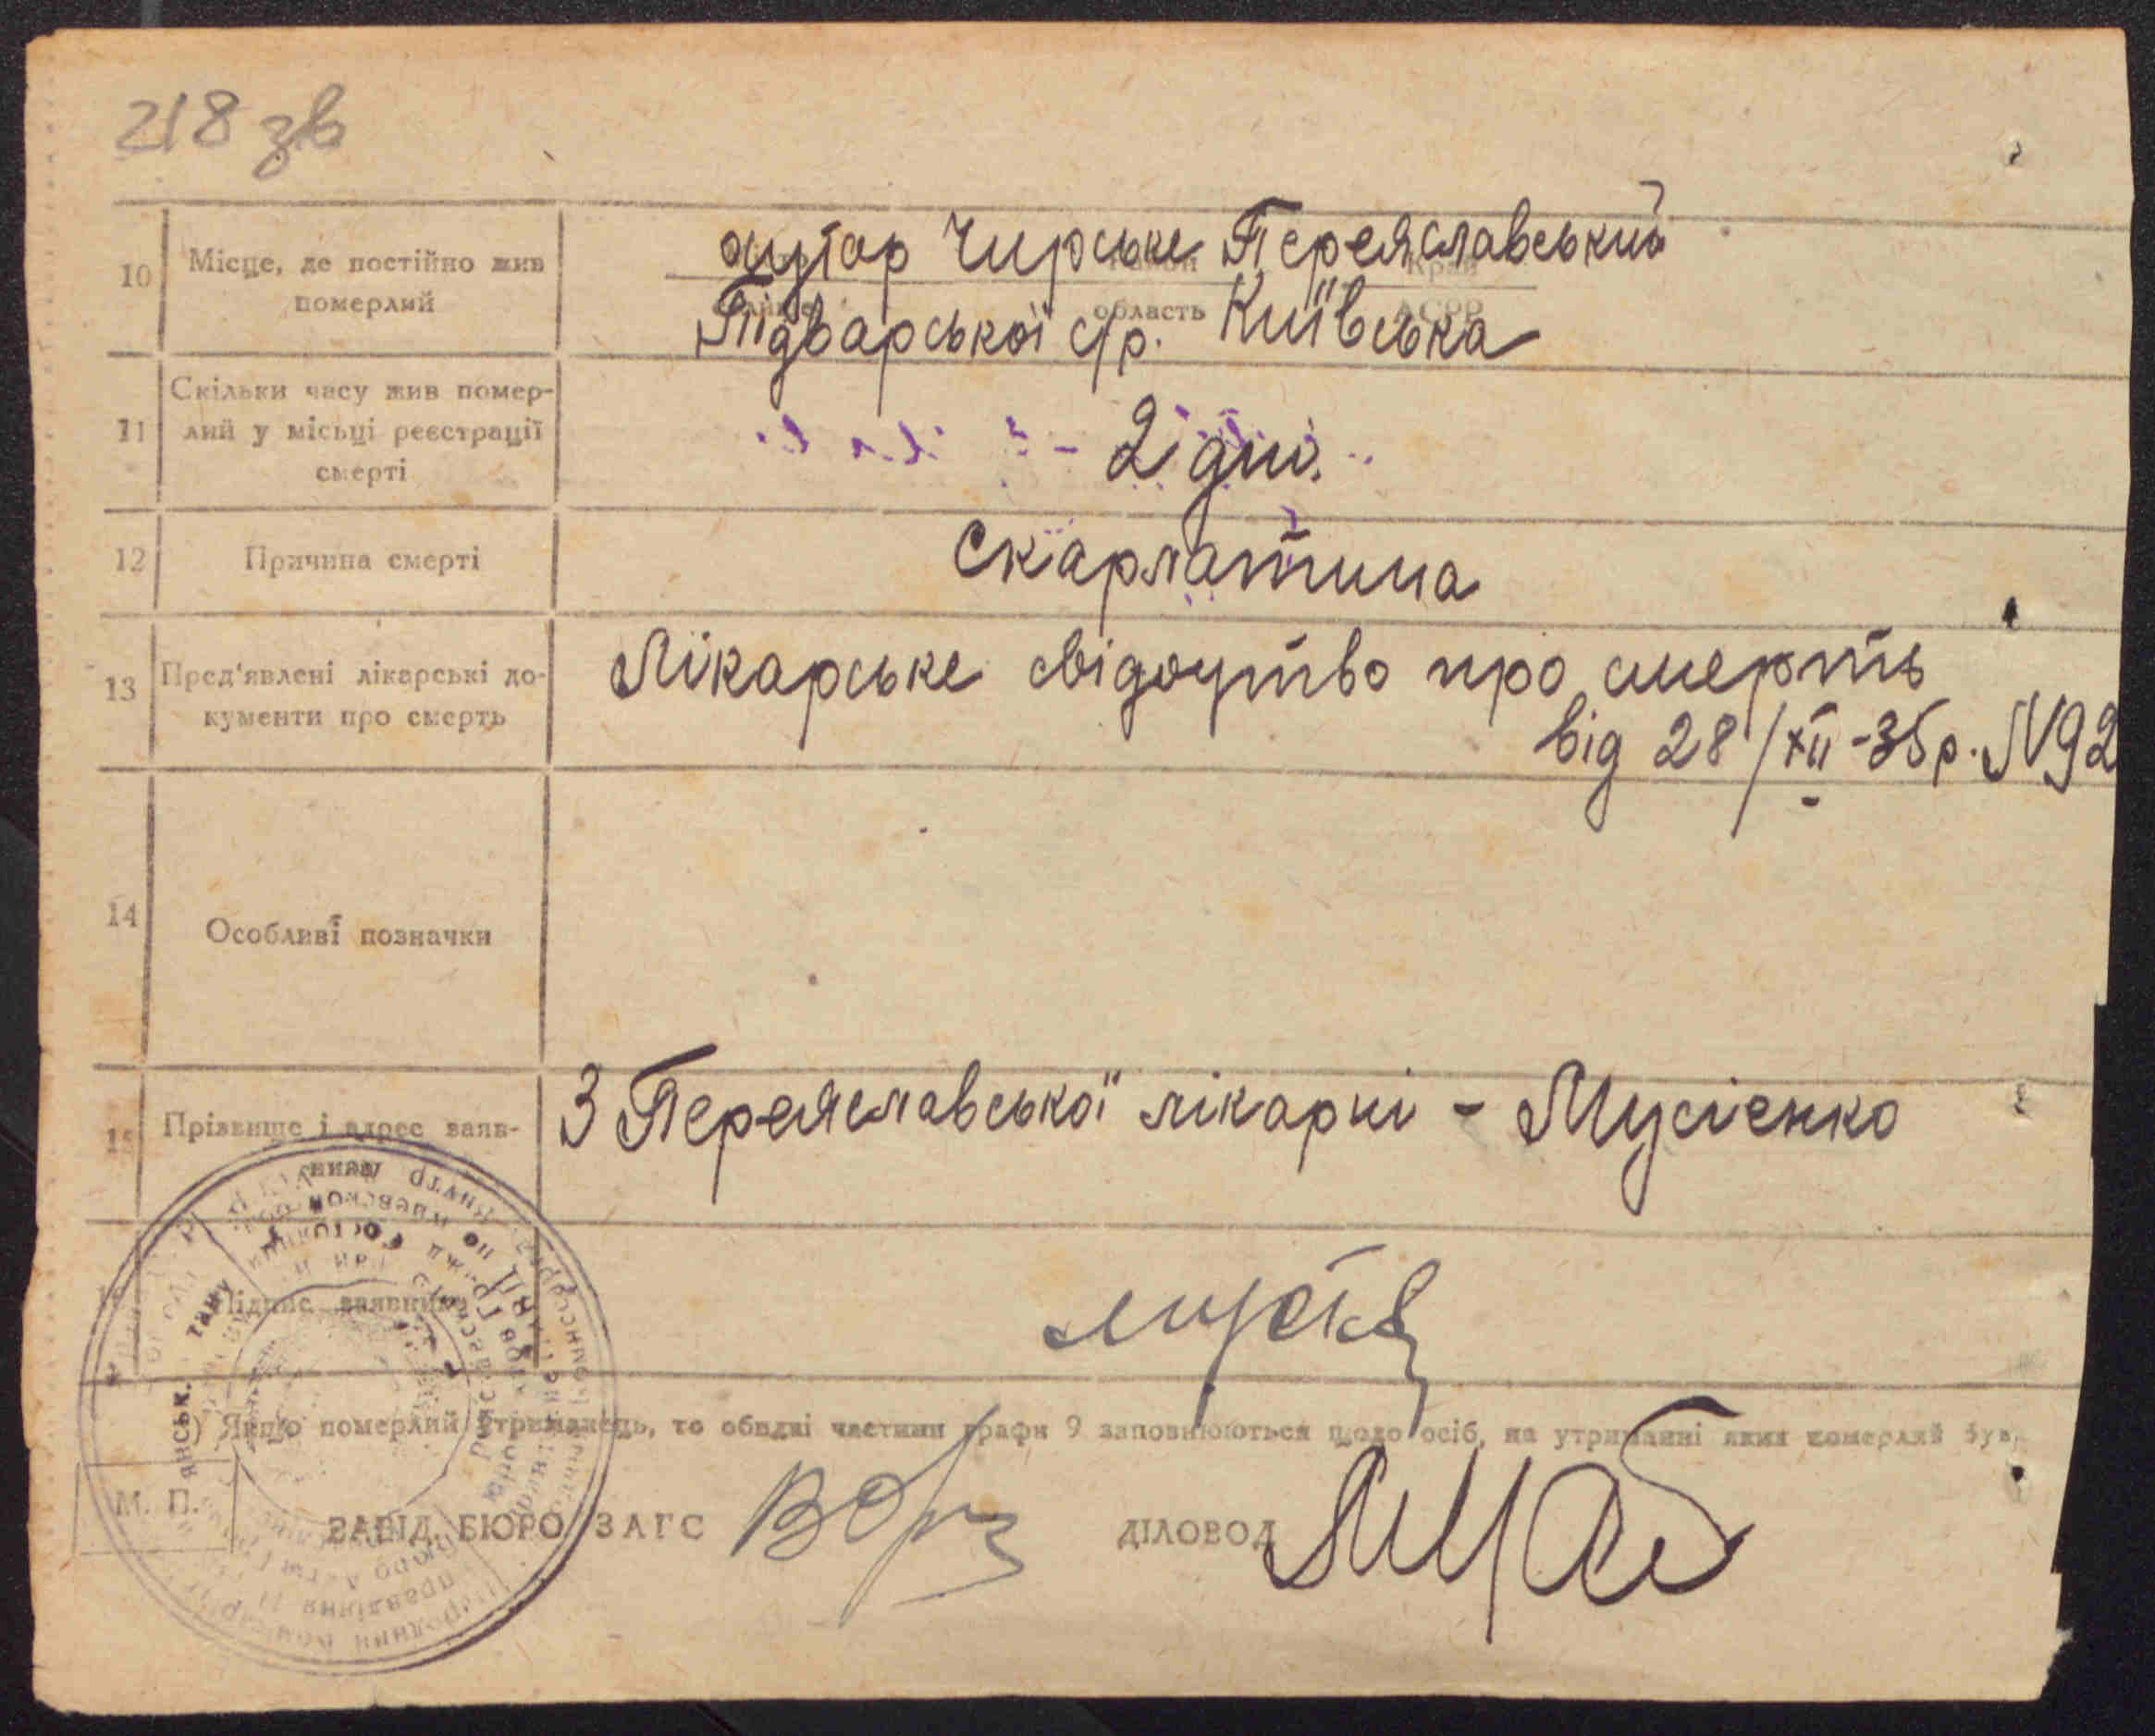 218 зв
10 Місце, де постійно жив
померлий
хутор Чирське Переяславський
район Край
область АСРР
Підварської с/р. Київська
11 Скільки часу жив помер-
лий у місьці реєстрації
смерті
2 дні.
12 Причина смерті
Скарлатина
13 Пред'явлені лікарські до-
кументи про смерть
Лікарське свідоцтво про смерть
від 28/XII-35 р. N 92
14 Особливі позначки
15 Прізвище і адрес заяв-
З Переяславської лікарні - Мусієнко
Підпис заявника
) Якщо померлий утриманець, то обидві частини графи 9 заповнюються щодо осіб, на утриманні яких померлий був
М. П.
ЗАВІД. БЮРО ЗАГС
ДІЛОВОД